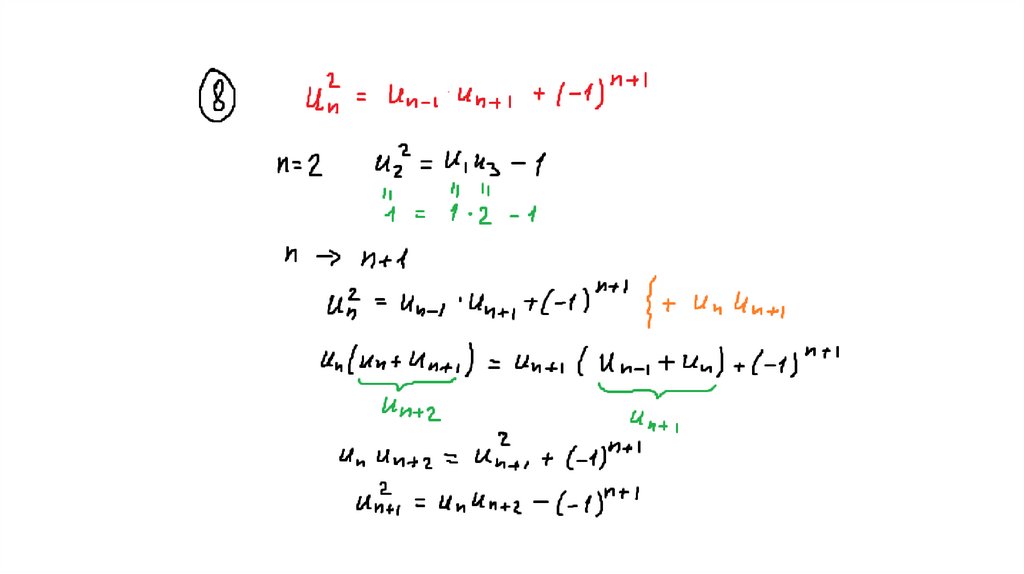 ⑧ uₙ² = uₙ₋₁ · uₙ₊₁ + (-1)ⁿ⁺¹
n=2 u₂² = u₁u₃ - 1
= = =
1 = 1·2 - 1
n → n+1
uₙ² = uₙ₋₁ · uₙ₊₁ + (-1)ⁿ⁺¹ { + uₙ uₙ₊₁
uₙ(uₙ + uₙ₊₁) = uₙ₊₁ (uₙ₋₁ + uₙ) + (-1)ⁿ⁺¹
uₙ₊₂ uₙ₊₁
uₙ uₙ₊₂ = uₙ₊₁² + (-1)ⁿ⁺¹
uₙ₊₁² = uₙ uₙ₊₂ - (-1)ⁿ⁺¹